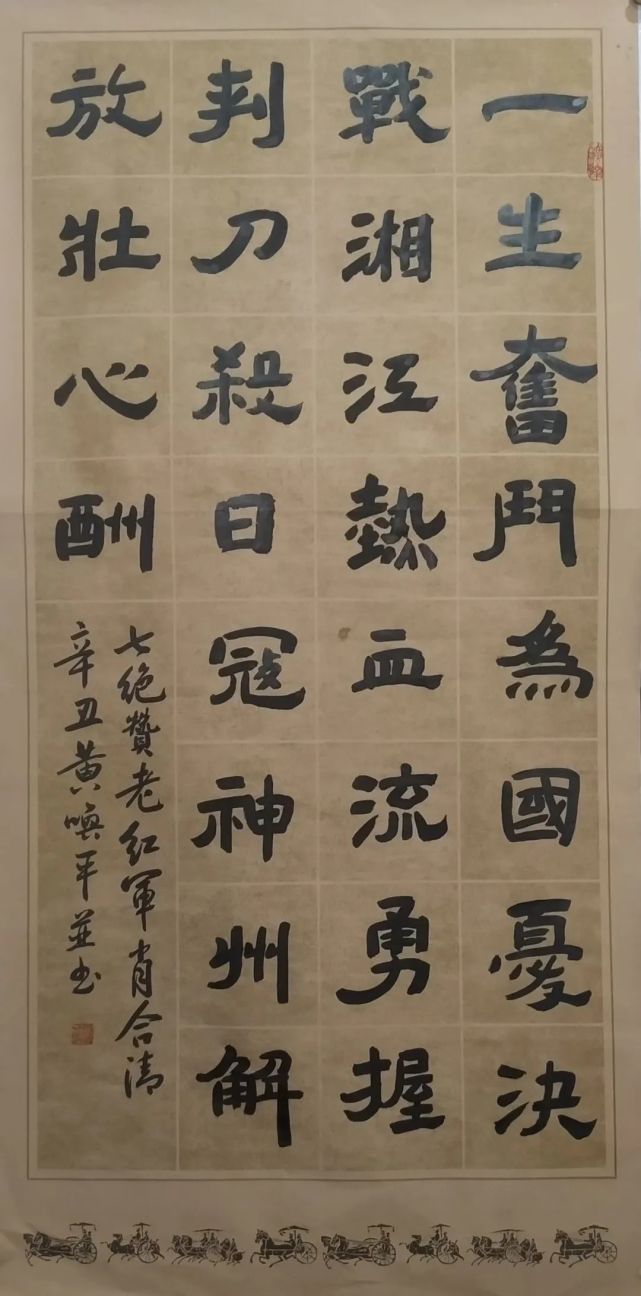 一生奮鬥為國憂決
戰湘江熱血流勇握
判刀殺日冦神州解
放壯心酬
七絕贊老紅軍肖合清
辛丑黃喚平並书